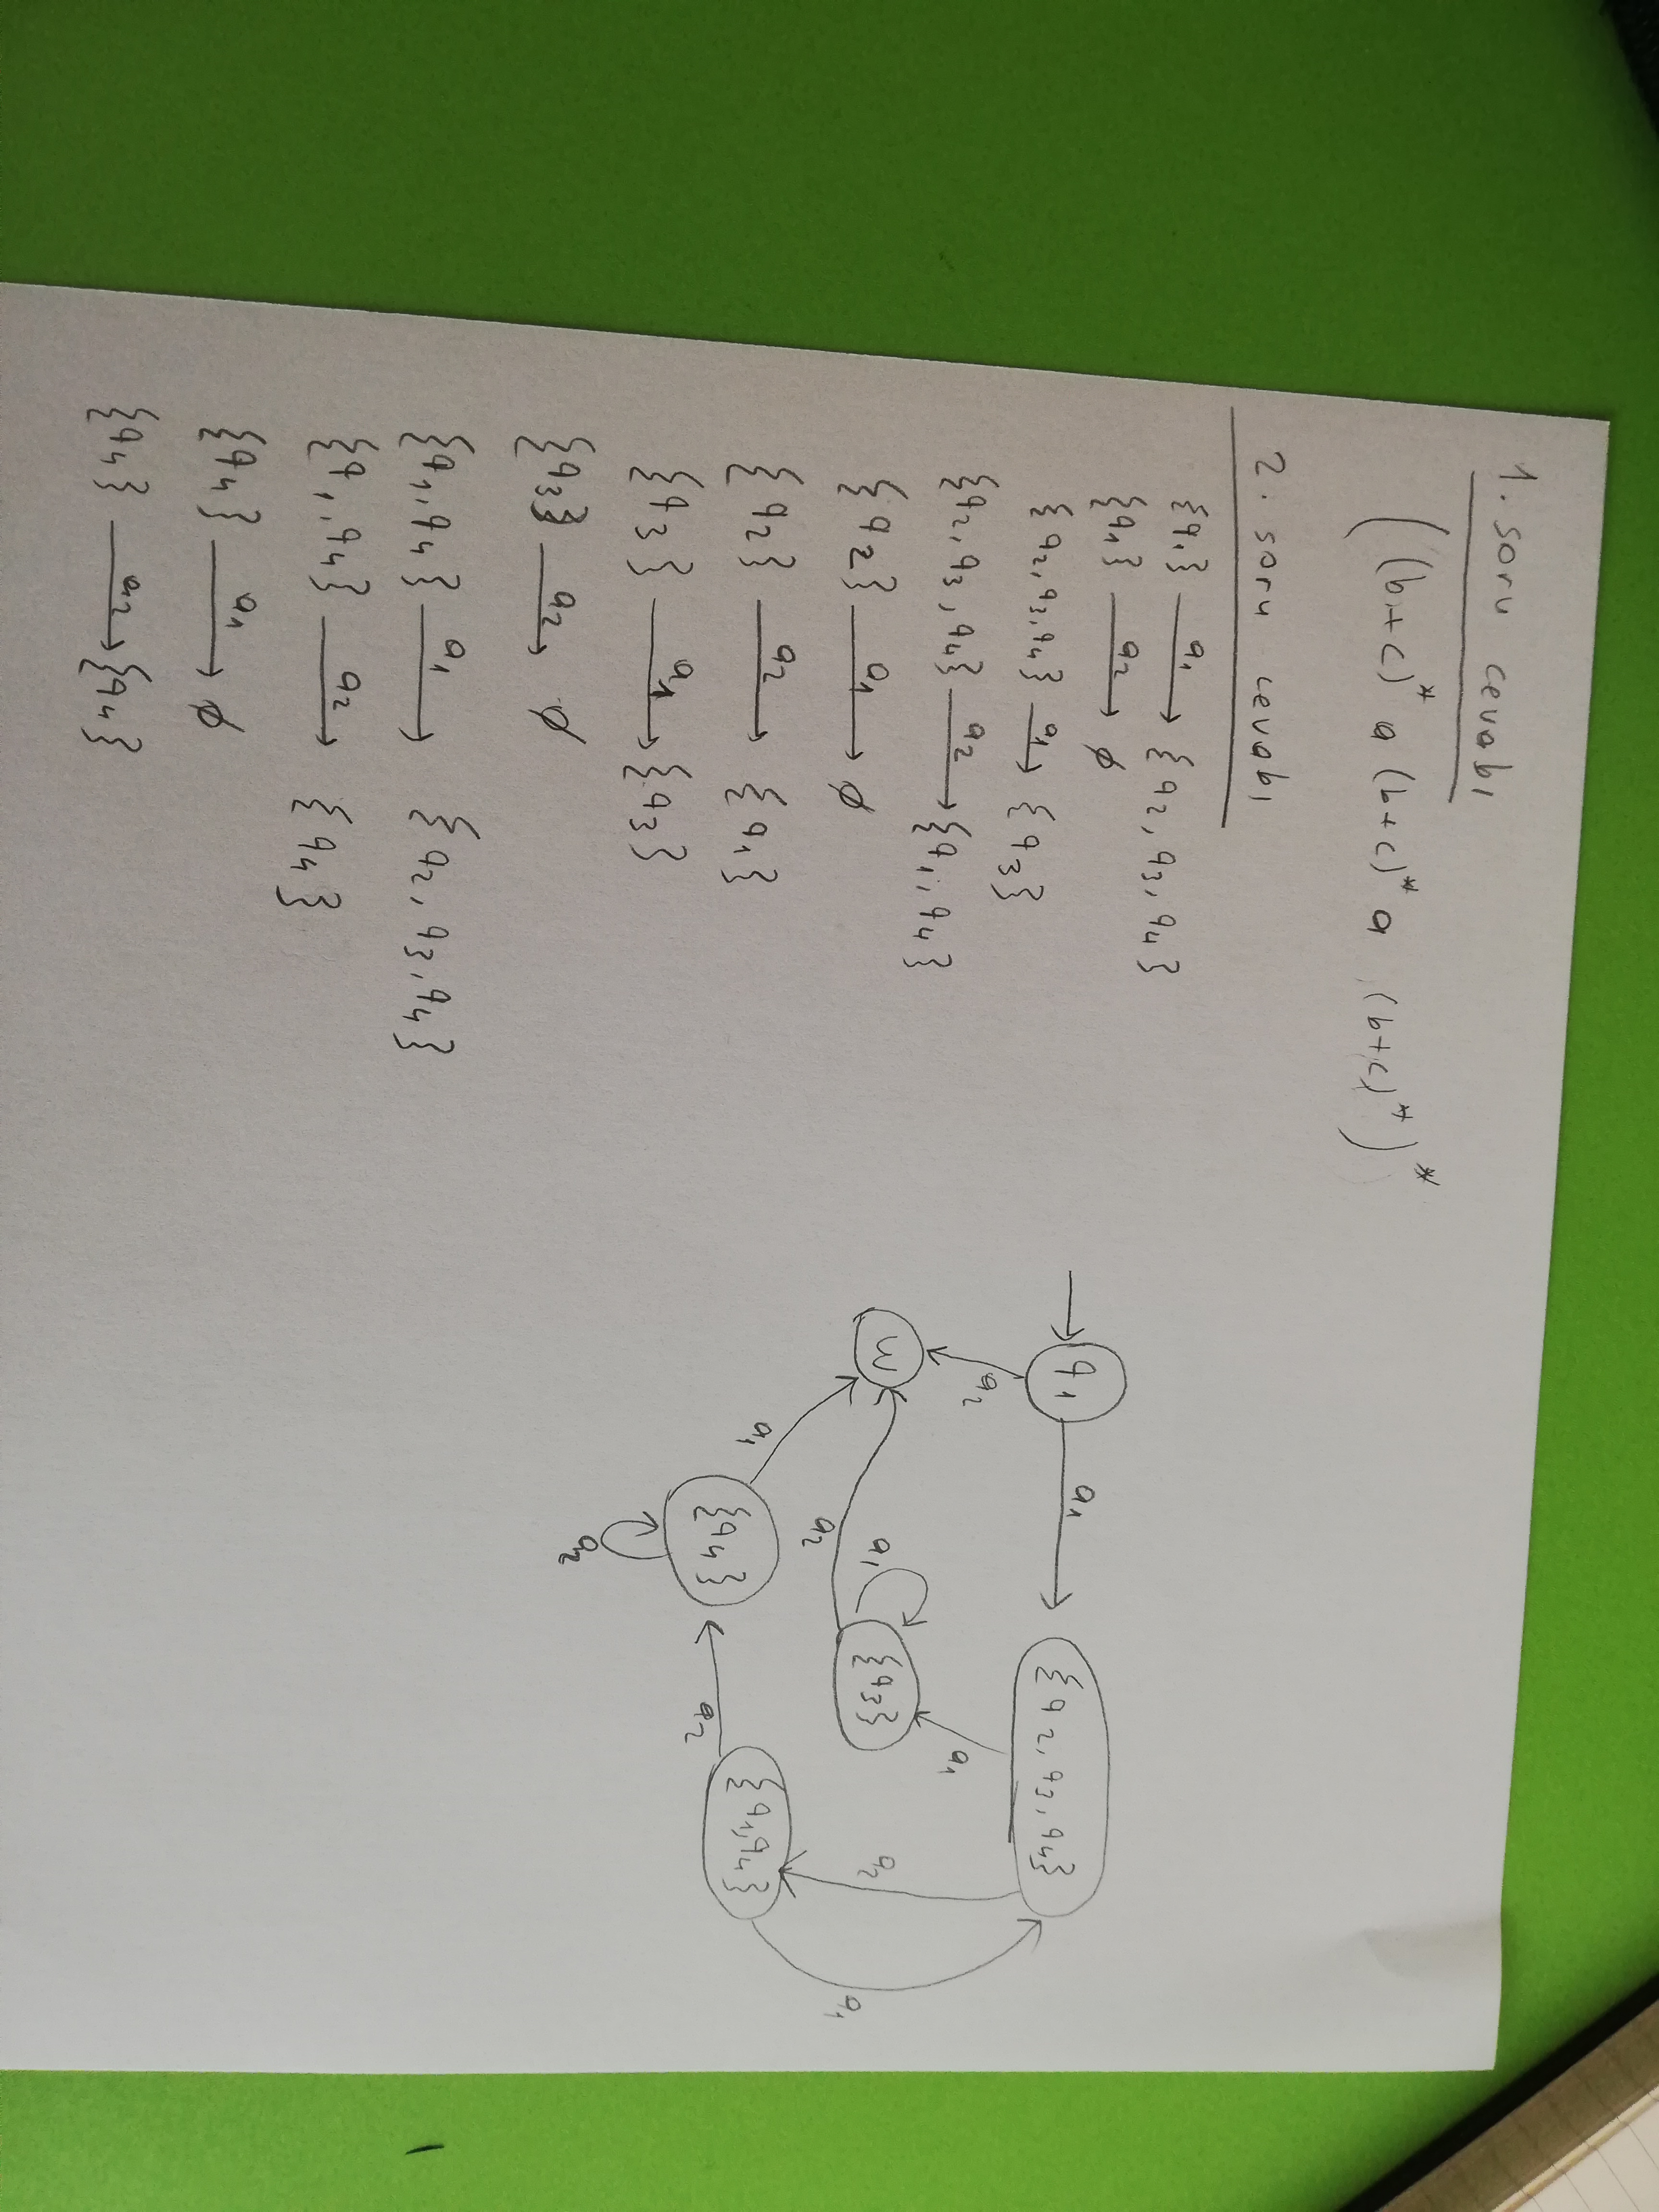 1. soru cevabı
((b+c)* a (b+c)* a (b+c)*)*
2. soru cevabı
{q1} a1 → {q2, q3, q4}
{q1} a2 → ∅
{q2, q3, q4} a1 → {q3}
{q2, q3, q4} a2 → {q1, q4}
{q2} a1 → ∅
{q2} a2 → {q1}
{q3} a1 → {q3}
{q3} a2 → ∅
{q1, q4} a1 → {q2, q3, q4}
{q1, q4} a2 → {q4}
{q4} a1 → ∅
{q4} a2 → {q4}
q1 a1 {q2, q3, q4}
a2
a1
W
a1
{q3}
a2
a1
a2
a1
{q4}
a2
{q1, q4}
a2